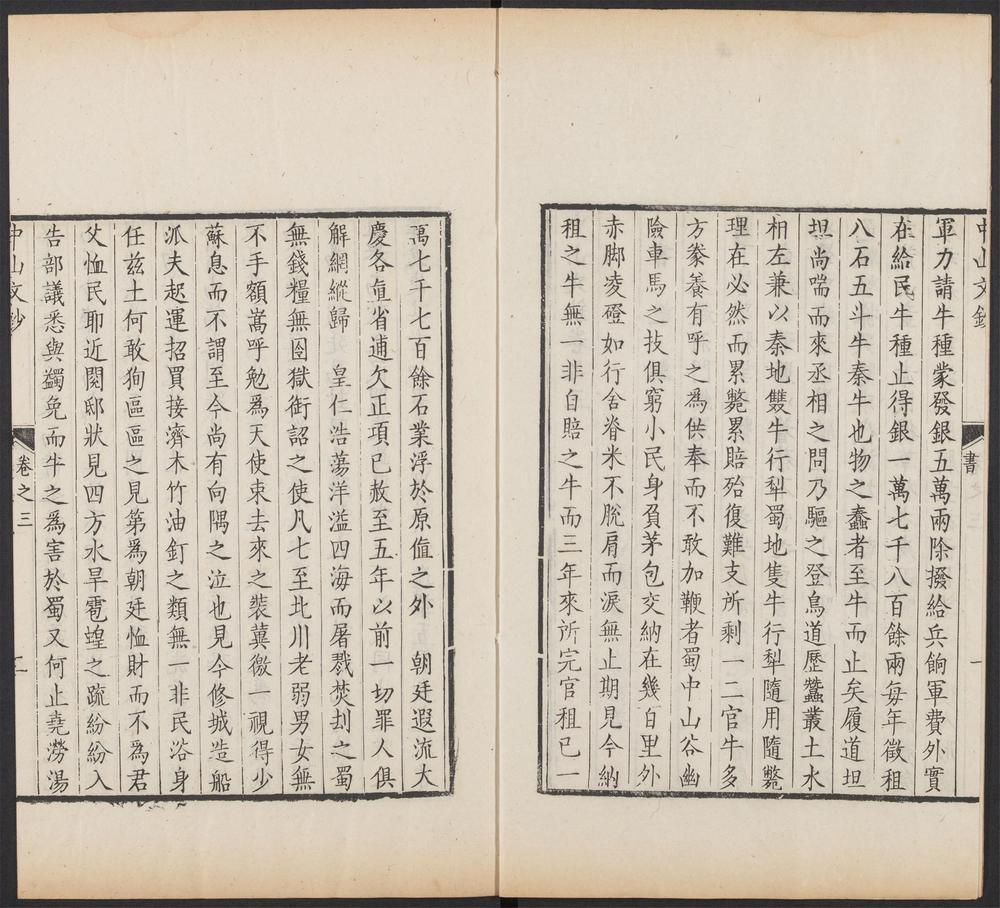 中山文鈔
書
一
軍力請牛種蒙發銀五萬兩除撥給兵餉軍費外實
在給民牛種止得銀一萬七千八百餘兩每年徵租
八石五斗牛秦牛也物之蠢者至牛而止矣履道坦
坦尚喘而來丞相之問乃驅之登鳥道歷蠶叢土水
相左兼以秦地雙牛行犁蜀地隻牛行犁隨用隨斃
理在必然而累斃累賠殆復難支所剩一二官牛多
方豢養有呼之為供奉而不敢加鞭者蜀中山谷幽
險車馬之技俱窮小民身負茅包交納在幾百里外
赤脚凌磴如行舍脊米不脫肩而淚無止期見今納
租之牛無一非自賠之牛而三年來所完官租已一
萬七千七百餘石業浮於原值之外 朝廷遐流大
慶各直省逋欠正項已赦至五年以前一切罪人俱
解網縱歸 皇仁浩蕩洋溢四海而屠戮焚刦之蜀
無錢糧無囹獄銜詔之使凡七至北川老弱男女無
不手額嵩呼勉為天使束去來之裝冀徼一視得少
蘇息而不謂至今尚有向隅之泣也見今修城造船
派夫起運招買接濟木竹油釘之類無一非民浴身
任茲土何敢狥區區之見第為朝廷恤財而不為君
父恤民耶近閱邸狀見四方水旱雹蝗之疏紛紛入
告部議悉與蠲免而牛之為害於蜀又何止堯澇湯
中山文鈔
卷之三